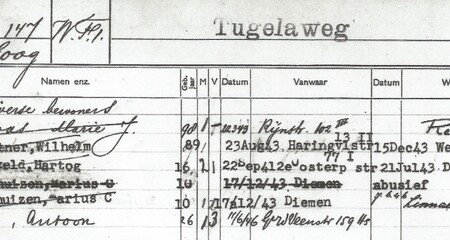 147 W.P.1. Tugelaweg
oog
Namen enz. Geb. jaar M V Datum Vanwaar Datum W
verse bewoners
Marie J. 98 1 - Rijnstr. 102 III
tner, Wilhelm 89 23Aug43 Haringvlstr 13 II 15Dec43 We
eld, Hartog 16 2 1 22Sep41 2e oosterp str 77 I 21Jul43 D
huizen, Marius C 10 17/12/43 Diemen abusief
huizen, arius C 10 12/43 Diemen
, Antoon 26 1 3 159 hs